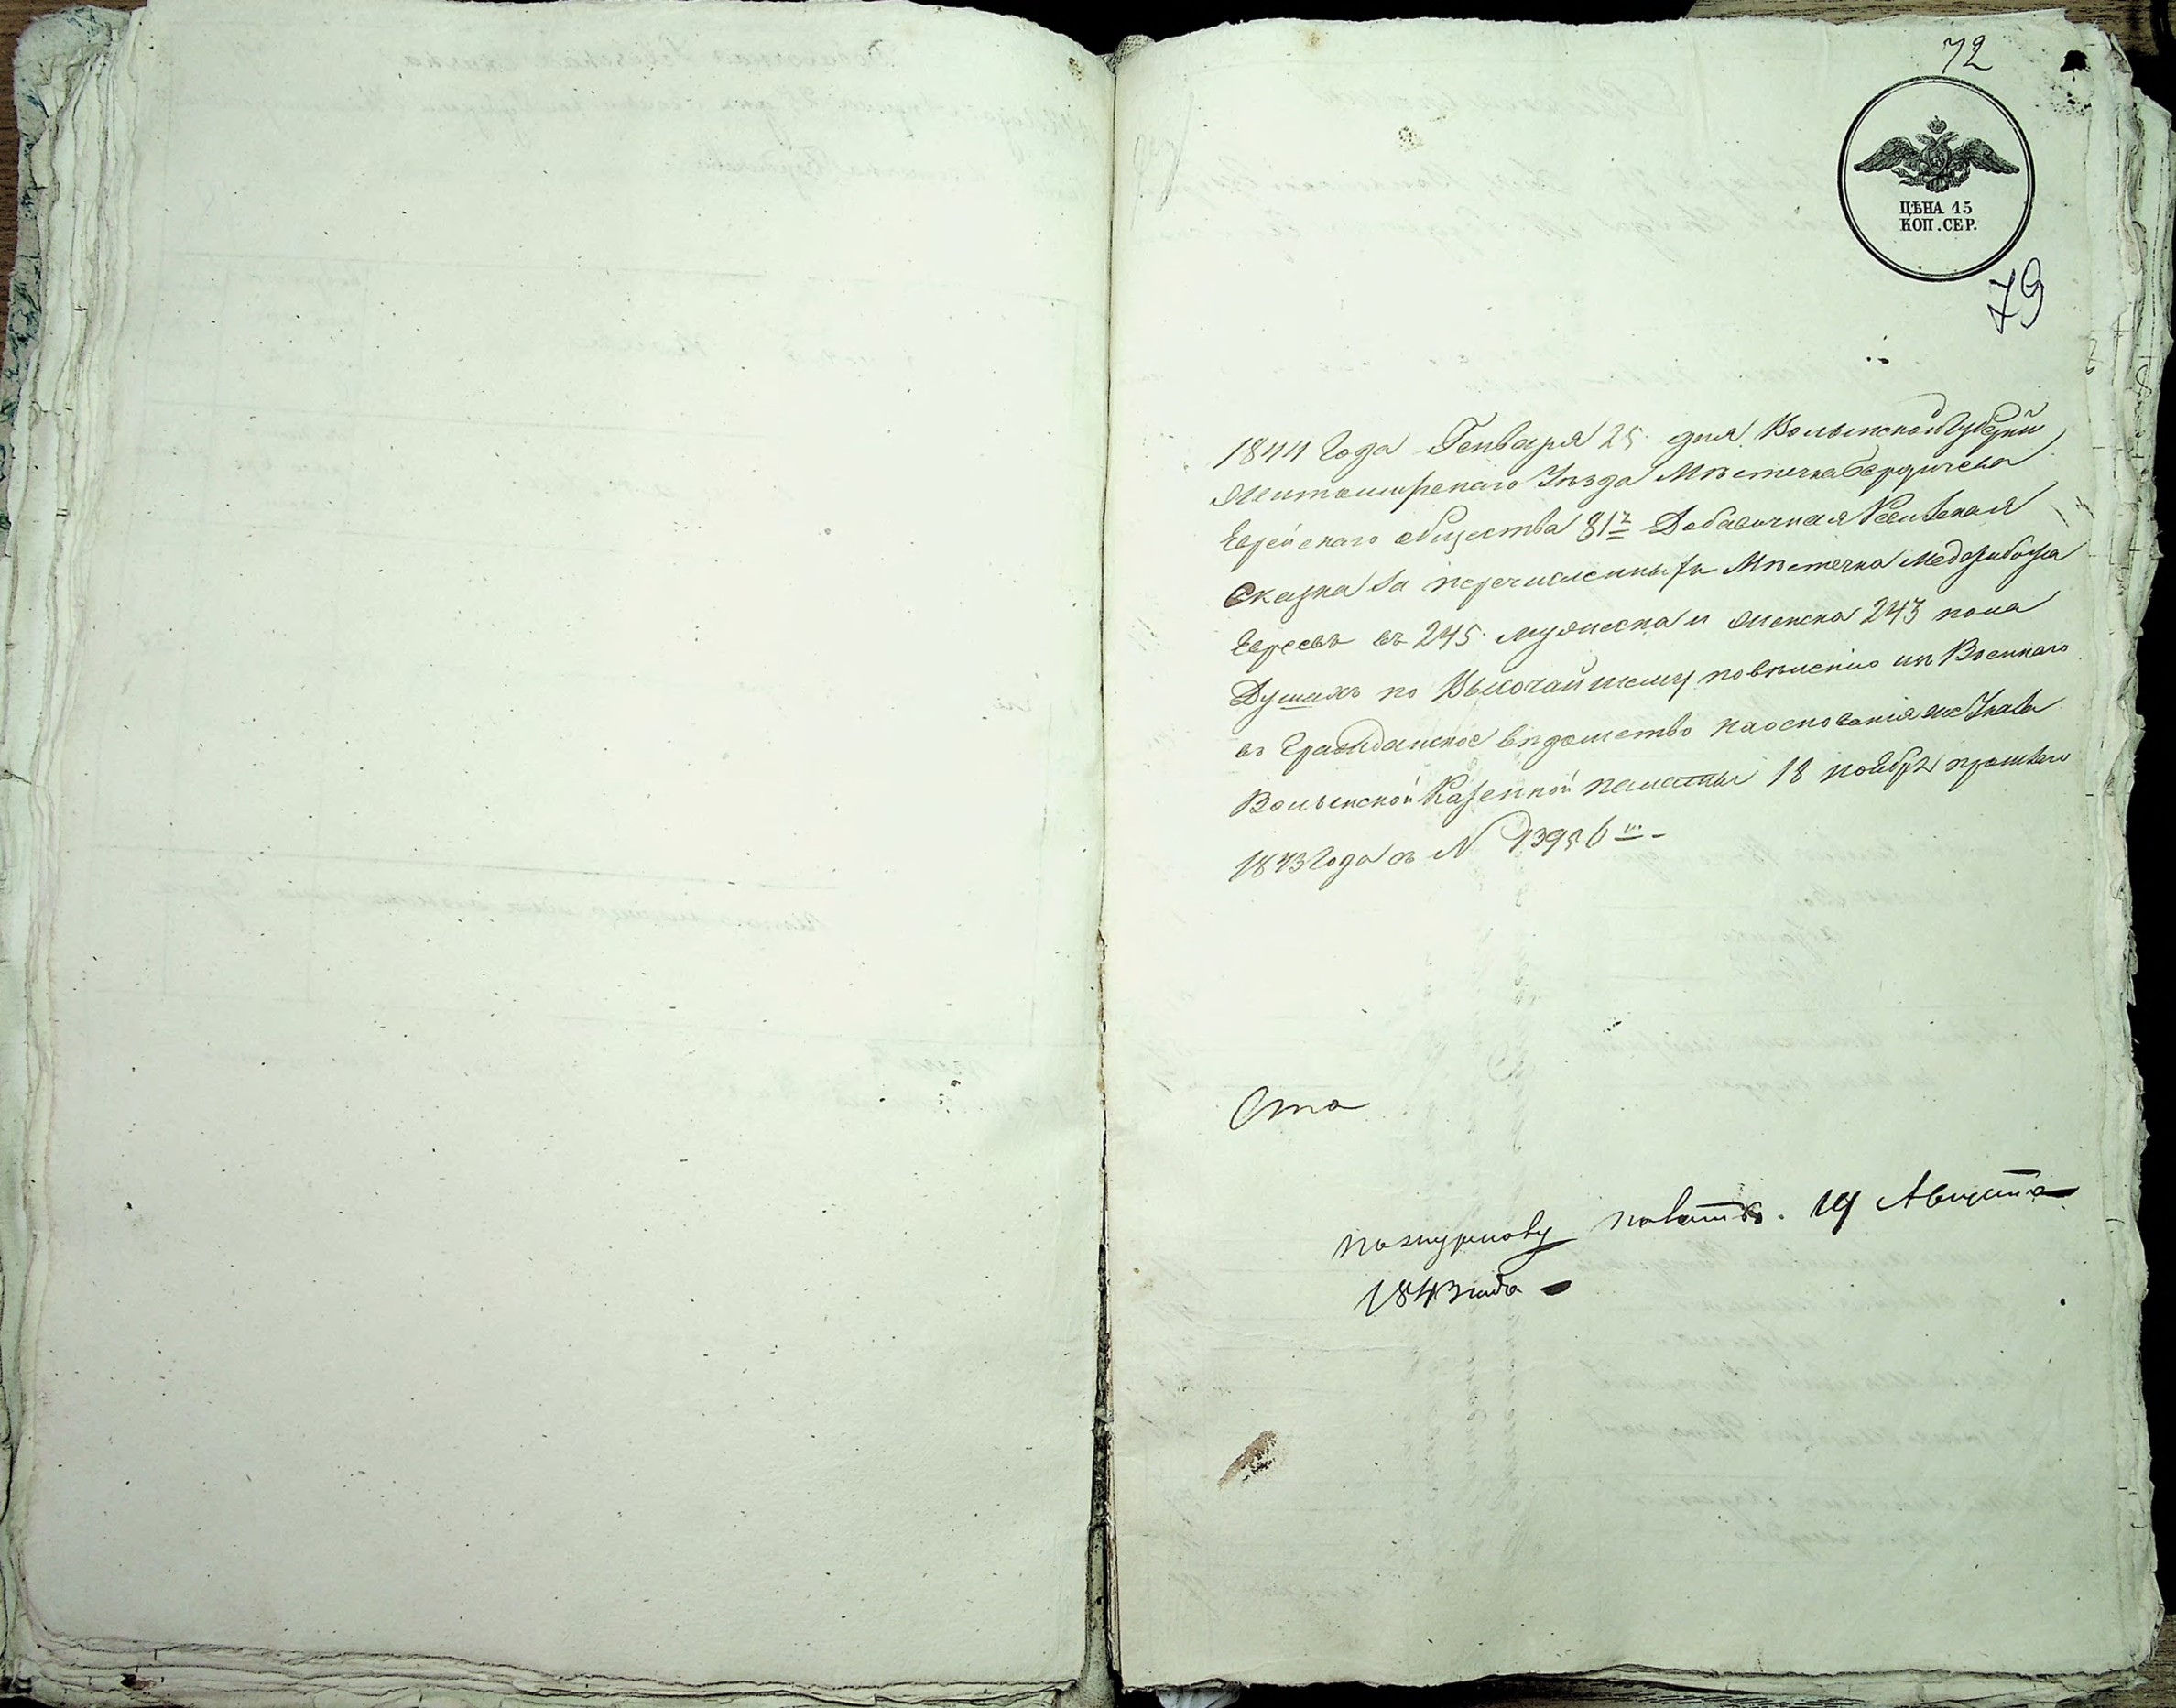 72
ЦѢНА 15
КОП. СЕР.
79
1844 Года Генваря 25 дня Волынской Губерніи
Житомирскаго Уѣзда Мѣстечка Бердичева
Еврейскаго общества 81ᵃ Добавочная Ревизская
Сказка за перечисленныхъ Мѣстечка Меджибожа
Евреевъ въ 245 мужеска и женска 243 пола
Душахъ по Высочайшему повѣленію изъ Военнаго
въ Гражданское вѣдомство на основаніи же Указа
Волынской Казенной палаты 18 ноября прошлаго
1843 Года за N 13956
1843 года
19 Августа